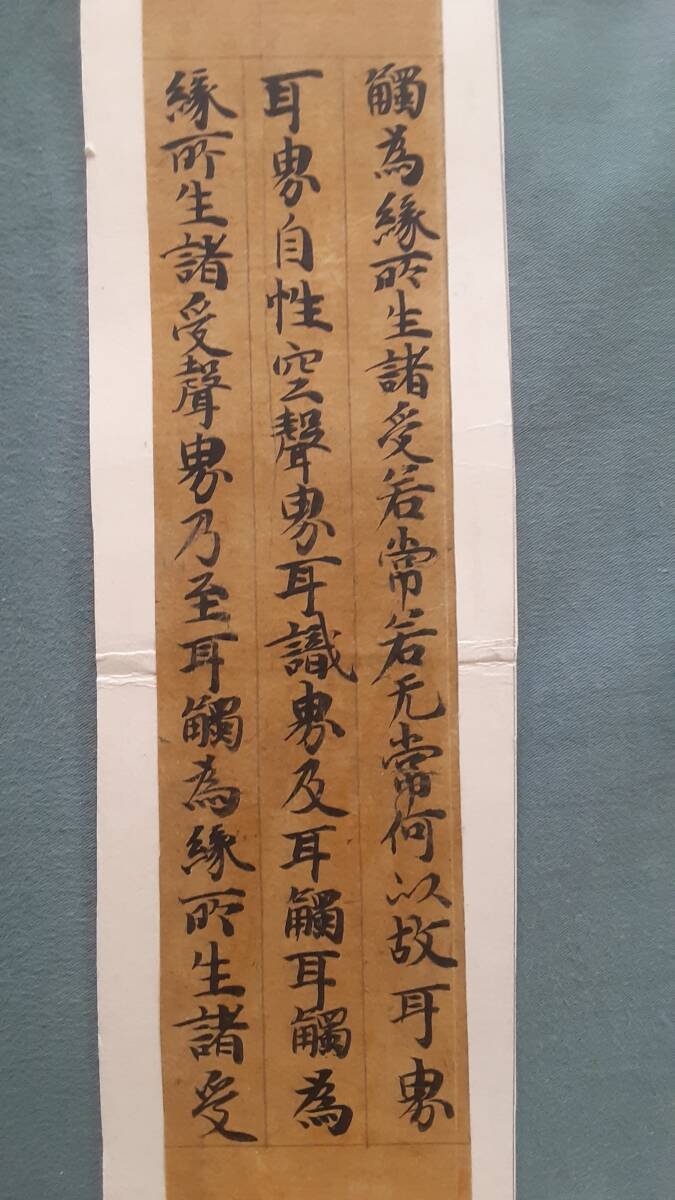 觸為緣所生諸受若常若无常何以故耳界
耳界自性空聲界耳識界及耳觸耳觸為
緣所生諸受聲界乃至耳觸為緣所生諸受